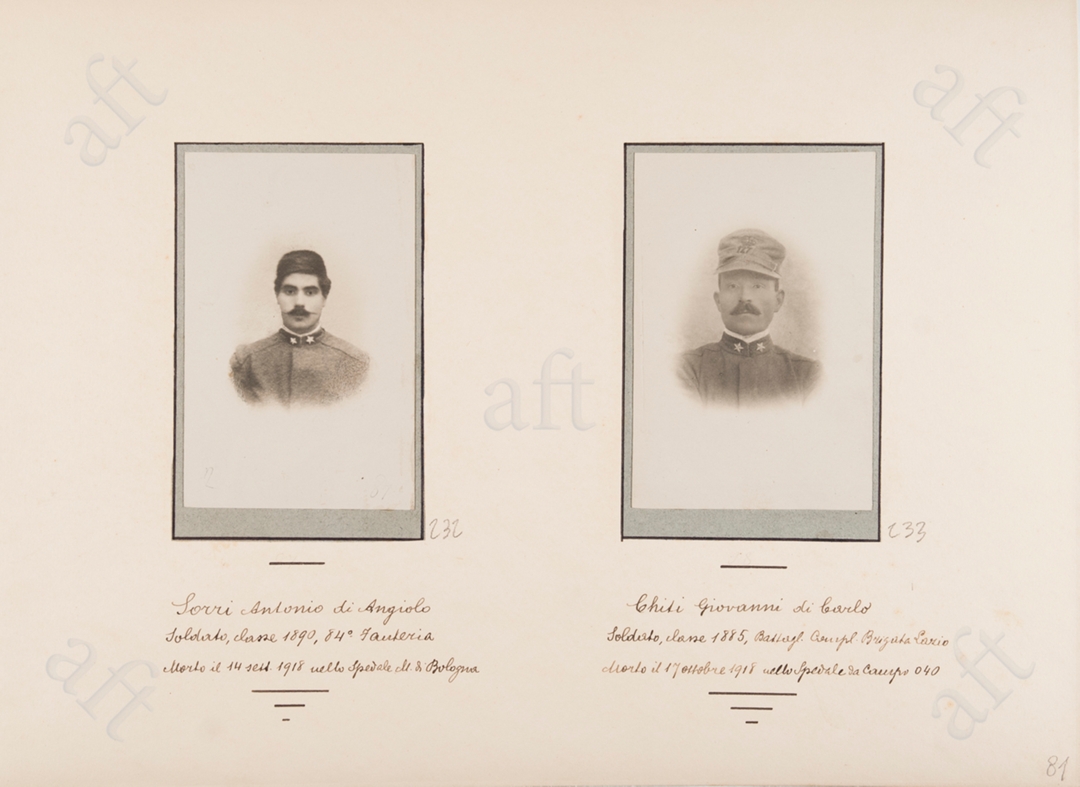 aft
aft
147
aft
232
233
Sorri Antonio di Angiolo
Soldato, classe 1890, 84º Fanteria
Morto il 14 sett. 1918 nello Spedale M. di Bologna
Chiti Giovanni di Carlo
Soldato, classe 1885, Battagl. Compl. Brigata Lazio
Morto il 17 ottobre 1918 nello Spedale da Campo 040
aft
aft
81